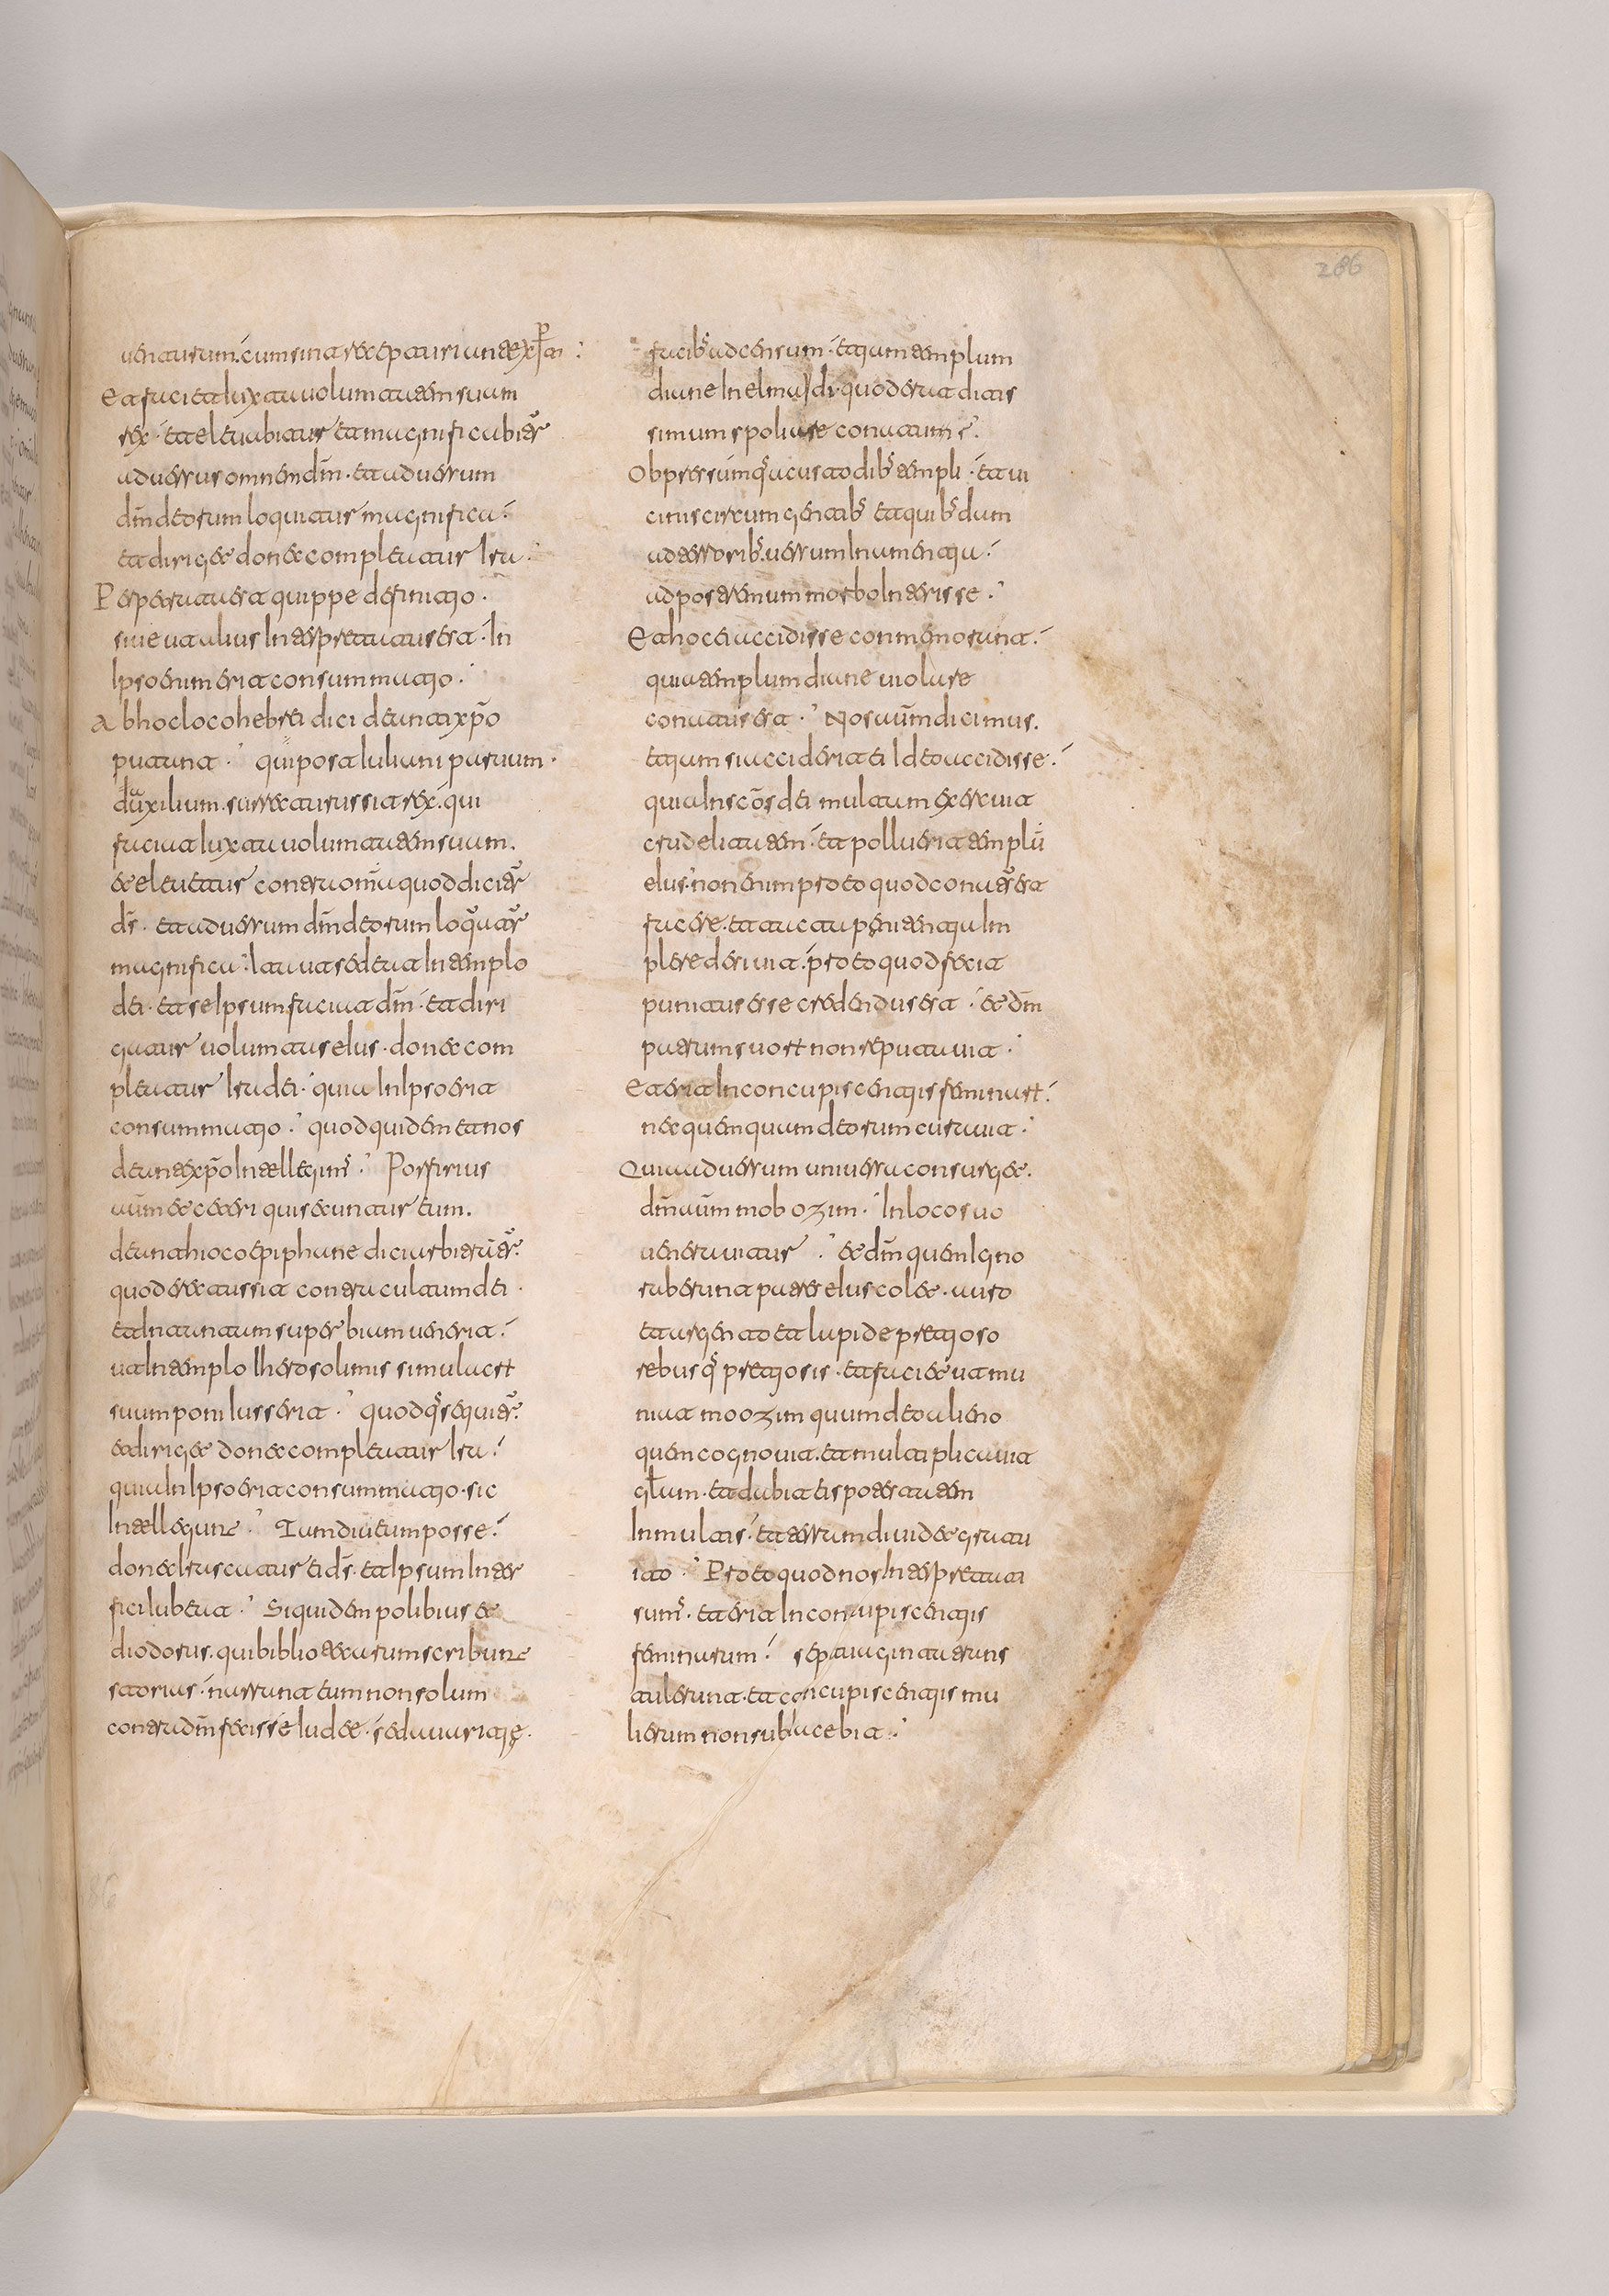 uenturum. cum sint recepturi antexp̄m
Et faciet Iuxta uoluntatem suam
rex. et eleuabitur et magnificabitur
aduersus omnem dm̄. et aduersum
dm̄ deorum loquitur magnifica.
et diriget donec compleatur Ira.
Perpetrata est quippe definitio.
siue ut alius Interpretatus est. In
Ipso enim erit consummatio.
Ab hoc loco hebrei dici de antixp̄o
putant. qui post Iuliani paruum.
auxilium. surrecturus sit rex. qui
faciat Iuxta uoluntatem suam.
et eleuetur contra om̄a quod dicitur
ds̄. et aduersum dm̄ deorum loquatur
magnifica. Ita ut sedeat In templo
dei. et se Ipsum faciat dm̄. et diri
gatur uoluntas eIus. donec com
pleatur Ira dei. quia In Ipso erit
consummatio. quod quidem et nos
de antexp̄o Intellegim̄. Porfirius
aūm et ceteri qui secuntur eum.
de anthioco epiphane dici arbitrantur.
quod erectus sit contra cultum dei.
et In tantum superbiam uenerit.
ut In templo Iherosolimis simulacrū
suum poni Iusserit. quodq; sequitur.
et diriget donec compleatur Ira.
quia In Ipso erit consummatio. sic
Intellegunt. Tamdiu eum posse.
donec Irascatur ei ds̄. et Ipsum Inter
fici Iubeat. Siquidem polibius et
diodorus. qui bibliothecarum scribunt
storias. narrant eum non solum
contra dm̄ fecisse Iudee. sed auaritię
facib; adcensum. etiam templum
diane In elmadi. quod erat ditis
simum spoliare conatum ē.
Obpressumq; a custodib; templi. et ui
cinis circum gentib; et quibusdam
ad terrorib; uersum In amentia.
ad postremum morbo Interisse.
Et hoc ei accidisse conmemorant.
quia templum diane uiolare
conatus est. Nos aūm dicimus.
etiam si acciderit ei Ideo accidisse.
quia In scōs dei multam exercuit
crudelitatem. et polluerit templū
eIus. non enim pro eo quod conatus est
facere. et acta penitentia Im
plere desiuit. pro eo quod fecit
punitus esse credendus est. et dm̄
patrum suorum non reputauit.
Et erit In concupiscentiis feminarum.
nec quemquam deorum curauit.
Quia aduersum uniuersa consurget.
dm̄ aūm mobozim. In loco suo
uenerauitur. et dm̄ quem Igno
rauerunt patres eIus colet. auro
et argento et lapide pretioso
rebusq; pretiosis. et faciet ut mu
niat moozim quum deo alieno
quem cognouit. et multiplicauit
glām. et dabit eis potestatem
In multis. et terram diuidet gratu
ito. Pro eo quod nos Interpretati
sum̄. et erit In concupiscentiis
feminarum. septuaginta uerunt
tulerunt. et concupiscentiis mu
lierum non subIacebit.
286